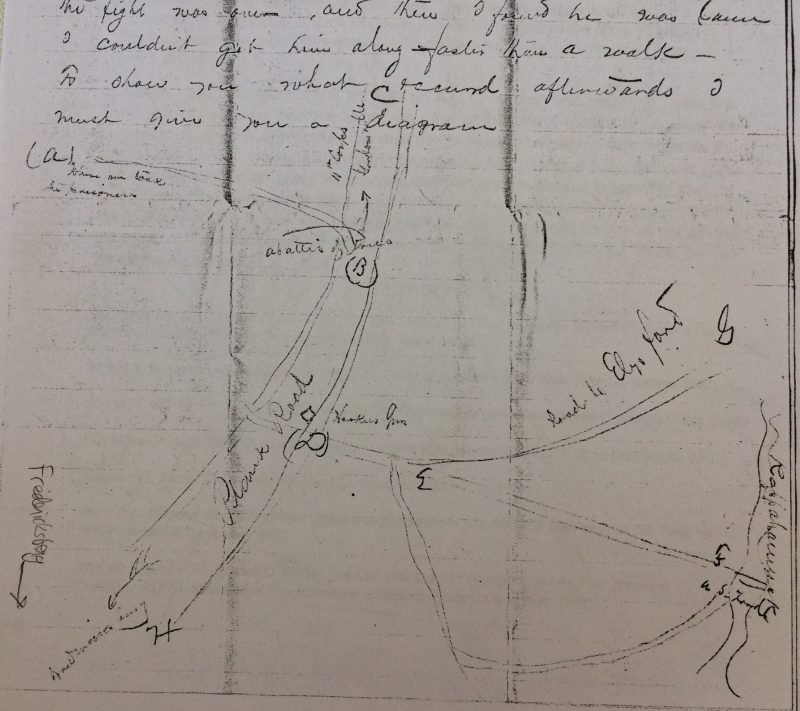 the fight was over, and then I found he was lame
I couldn't get him along faster than a walk –
To show you what occured afterwards I
must give you a diagram
C
11th Corps
(a)
where we took
the prisoners
abattis of trees
B
Road to Elys ford
G
Plank Road
D
E
Rappahannock
Fredricksbg
F
U.S. Ford
H